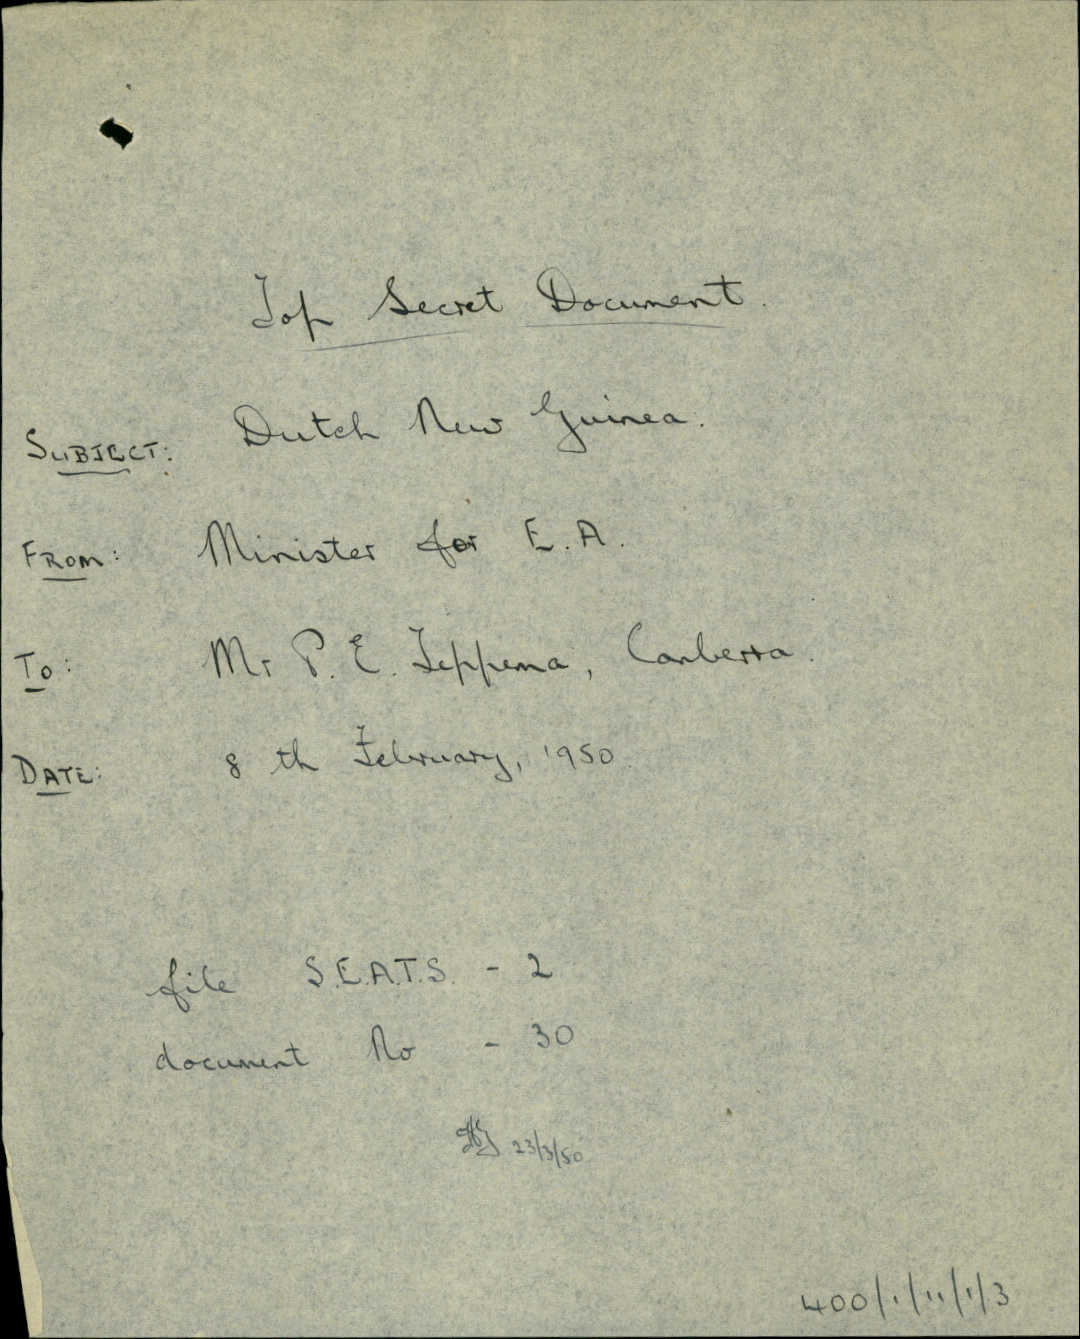 Top Secret Document.
SUBJECT: Dutch New Guinea.
FROM: Minister for E.A.
To: Mr P.E. Teppema, Canberra.
DATE: 8 th February, 1950.
file S.E.A.T.S. - 2
document No - 30
23/3/50
400/1/11/1/3